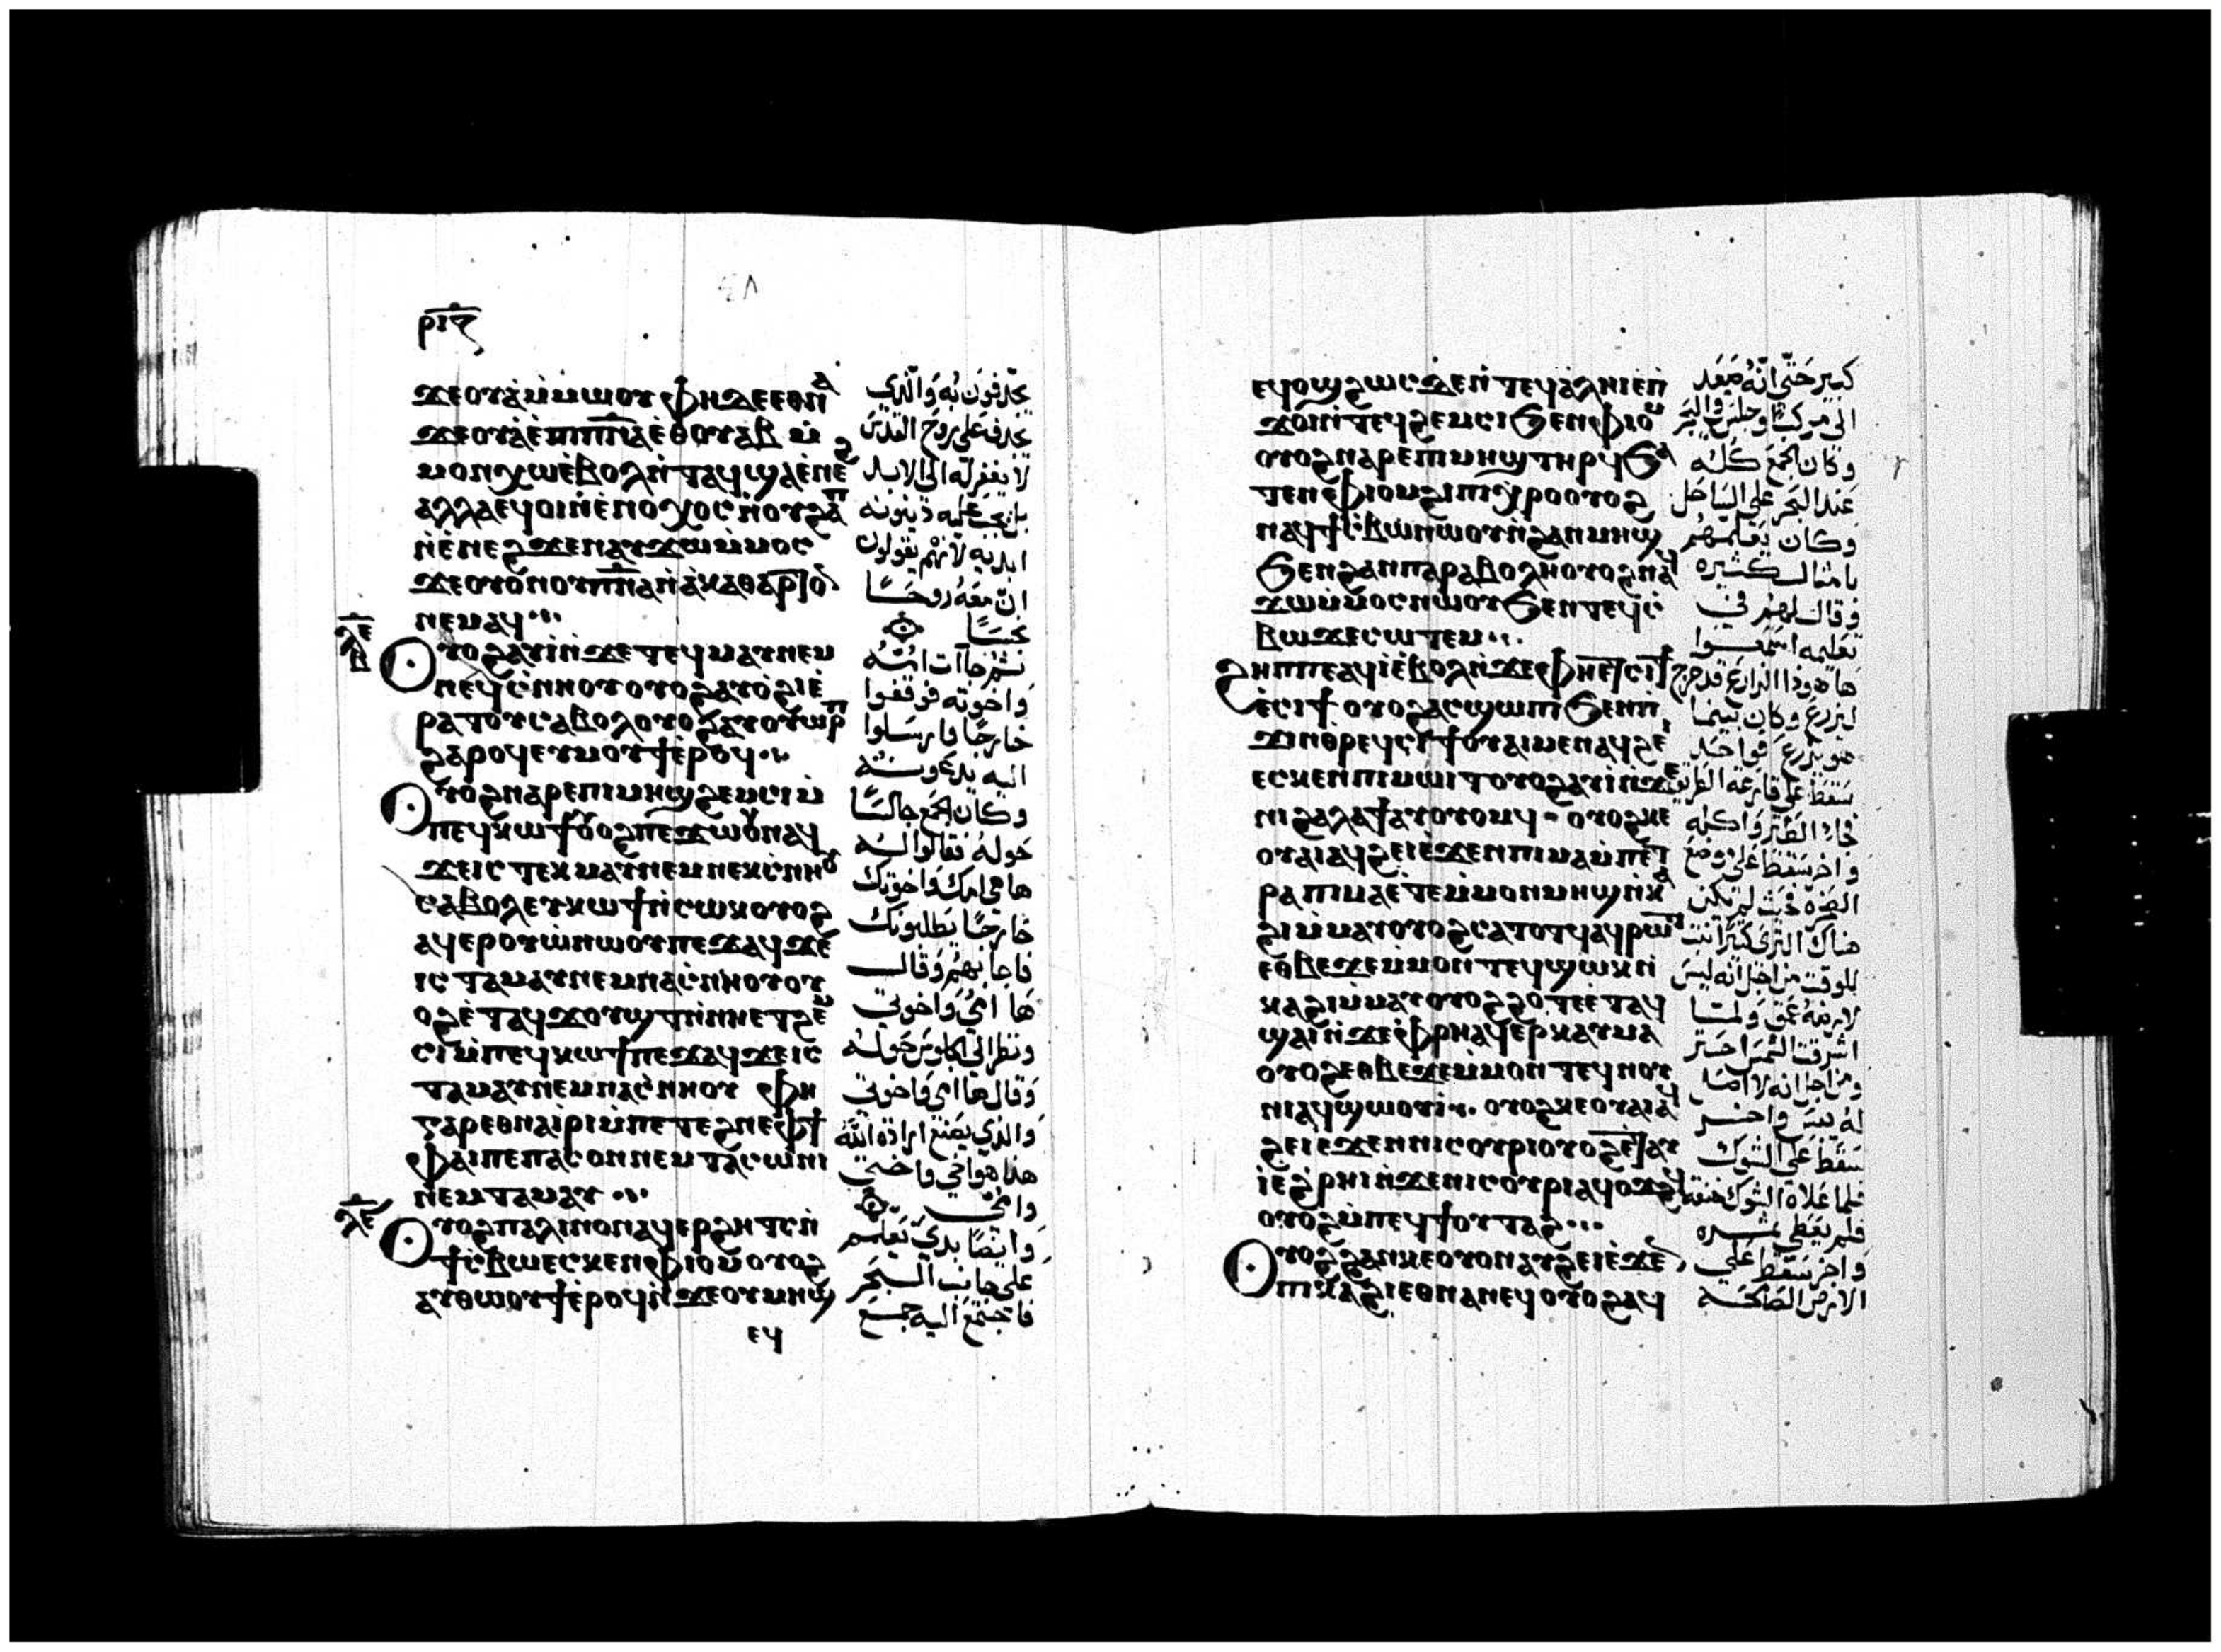 ⲣⲓⲍ
ϫⲉⲟⲩⲁ̀ⲙ̀ⲙⲱⲟⲩ ⲫⲏⲇⲉⲉⲑⲛⲁ
ϫⲉⲟⲩⲁ̀ⲉ̀ⲡⲓⲡⲛⲁⲉ̀ⲑⲟⲩⲁⲃ ⲙ̀
ⲙⲟⲛⲭⲱⲉ̀ⲃⲟⲗⲛ̀ⲧⲁϥϣⲁⲉ̀ⲛⲉϩ
ⲁⲗⲗⲁⲉϥⲟⲓⲛ̀ⲉ̀ⲛⲟⲭⲟⲥⲛ̀ⲟⲩϩⲁⲡ
ⲛ̀ⲉ̀ⲛⲉϩϫⲉⲛⲁⲩϫⲱⲙ̀ⲙⲟⲥ
ϫⲉⲟⲩⲟⲛⲟⲩⲡⲛⲁⲛ̀ⲁ̀ⲕⲁⲑⲁⲣⲧⲟⲛ
ⲛⲉⲙⲁϥ
ⲗⲉ
ⲟⲩⲟϩⲁⲩⲓ̀ⲛ̀ϫⲉⲧⲉϥⲙⲁⲩⲛⲉⲙ
ⲛⲉϥⲥ̀ⲛⲏⲟⲩⲟⲩⲟϩⲁⲩⲟ̀ϩⲓⲉ̀
ⲣⲁⲧⲟⲩⲥⲁⲃⲟⲗⲟⲩⲟϩⲁⲩⲟⲩⲱⲣⲡ
ϩⲁⲣⲟϥⲉⲩⲙⲟⲩϯⲉ̀ⲣⲟϥ
ⲟⲩⲟϩⲛⲁⲣⲉⲡⲓⲙⲏϣϩⲉⲙⲥⲓⲙ̀
ⲡⲉϥⲕⲱϯⲟⲩⲟϩⲡⲉϫⲱⲟⲩⲛⲁϥ
ϫⲉⲓⲥ ⲧⲉⲕⲙⲁⲩⲛⲉⲙⲛⲉⲕⲥ̀ⲛⲏⲟⲩ
ⲥⲁⲃⲟⲗⲉⲩⲕⲱϯⲛ̀ⲥⲱⲕⲟⲩⲟϩ
ⲁϥⲉⲣⲟⲩⲱ̀ⲛⲱⲟⲩⲡⲉϫⲁϥϫⲉ
ⲓⲥ ⲧⲁⲙⲁⲩⲛⲉⲙⲛⲁⲥ̀ⲛⲏⲟⲩⲟⲩ
ⲟϩⲉ̀ⲧⲁϥϫⲟⲩϣⲧⲛ̀ⲛⲏⲉⲧϩⲉⲙ
ⲥⲓⲙ̀ⲡⲉϥⲕⲱϯⲡⲉϫⲁϥϫⲉⲓⲥ
ⲧⲁⲙⲁⲩⲛⲉⲙⲛⲁⲥ̀ⲛⲏⲟⲩ ⲫⲏ
ⲅⲁⲣⲉⲑⲛⲁⲓ̀ⲣⲓⲙ̀ⲡⲉⲧⲉϩⲛⲉⲫϯ
ⲫⲁⲓⲡⲉⲡⲁⲥⲟⲛⲛⲉⲙⲧⲁⲥⲱⲛⲓ
ⲛⲉⲙⲧⲁⲙⲁⲩ
ⲟⲩⲟϩⲡⲁⲗⲓⲛⲟⲛⲁϥⲉⲣϩⲏⲧⲥⲛ̀
ϯⲥ̀ⲃⲱⲉⲥⲕⲉⲛⲫⲓⲟⲙⲟⲩⲟϩ
ⲁⲩⲑⲱⲟⲩϯⲉ̀ⲣⲟϥⲛ̀ϫⲉⲟⲩⲙⲏϣ
ⲉϥ
يجدفون به والذي
يجدف على روح القدس
لا يغفر له الى الابد
بل يجب عليه دينونه
ابديه لانهم يقولون
ان معه روحا
نجسا
ثم جات امه
واخوته فوقفوا
خارجا فارسلوا
اليه يدعونه
وكان الجمع جالسا
حوله فقالوا له
ها هي امك واخوتك
خارجا يطلبونك
فاجابهم وقال
ها امي واخوتي
ونظر الى الجلوس حوله
وقال ها امي واخوتي
والذي يصنع ارادة الله
هذا هو اخي واختي
وامي
وايضا بدى يعلم
على جانب البحر
فاجتمع اليه جمع
ⲉϥⲟϣϩⲱⲥⲇⲉⲛ̀ⲧⲉϥⲁ̀ⲗⲏⲓⲉⲡ
ϫⲟⲓⲛ̀ⲧⲉϥϩⲉⲙⲥⲓϧⲉⲛⲫⲓⲟⲙ
ⲟⲩⲟϩⲛⲁⲣⲉⲡⲓⲙⲏϣⲧⲏⲣϥϧⲁ
ⲧⲉⲛⲫⲓⲟⲙϩⲓⲡⲓⲭⲣⲟⲟⲩⲟϩ
ⲛⲁϥϯⲥ̀ⲃⲱⲛⲱⲟⲩⲛ̀ϩⲁⲛⲙⲏϣ
ϧⲉⲛϩⲁⲛⲡⲁⲣⲁⲃⲟⲗⲏⲟⲩⲟϩⲛⲁϥ
ϫⲱⲙ̀ⲙⲟⲥⲛⲱⲟⲩϧⲉⲛⲧⲉϥⲥ̀
ⲃⲱϫⲉⲥⲱⲧⲉⲙ
ϩⲏⲡⲡⲉⲁϥⲓ̀ⲉ̀ⲃⲟⲗⲛ̀ϫⲉⲫⲏⲉⲧⲥⲓϯ
ⲉ̀ⲥⲓϯ ⲟⲩⲟϩⲁⲥϣⲱⲡⲓϧⲉⲛⲡ
ϫⲓⲛⲑⲣⲉϥⲥⲓϯⲟⲩⲁⲓⲙⲉⲛⲁϥϩⲉⲓ
ⲉⲥⲕⲉⲛⲡⲓⲙⲱⲓⲧⲟⲩⲟϩⲁⲩⲓ̀ⲛ̀ϫⲉ
ⲛⲓϩⲁⲗⲁϯⲁⲩⲟⲩⲟⲙϥ ⲟⲩⲟϩⲕⲉ
ⲟⲩⲁⲓⲁϥϩⲉⲓⲉ̀ϫⲉⲛⲡⲓⲙⲁⲙ̀ⲡⲉⲧ
ⲣⲁⲡⲓⲙⲁⲉ̀ⲧⲉⲙ̀ⲙⲟⲛⲙⲏϣⲛ̀ⲕⲁ
ϩⲓⲙ̀ⲙⲁⲩⲟⲩⲟϩⲥⲁⲧⲟⲧϥⲁϥⲣⲱⲧ
ⲉⲑⲃⲉϫⲉⲙ̀ⲙⲟⲛⲧⲉϥϣⲱⲕⲛ̀
ⲕⲁϩⲓⲙ̀ⲙⲁⲩⲟⲩⲟϩϩⲟⲧⲉⲉ̀ⲧⲁϥ
ϣⲁⲓⲛ̀ϫⲉⲫⲣⲏⲁϥⲉⲣⲕⲁⲩⲙⲁ
ⲟⲩⲟϩⲉⲑⲃⲉϫⲉⲙ̀ⲙⲟⲛⲧⲉϥⲛⲟⲩ
ⲛⲓⲁϥϣⲱⲟⲩⲓ ⲟⲩⲟϩⲕⲉⲟⲩⲁⲓⲁϥ
ϩⲉⲓⲉ̀ϫⲉⲛⲛⲓⲥⲟⲩⲣⲓⲟⲩⲟϩⲉ̀ⲧⲁⲩ
ⲓ̀ⲉϩⲣⲏⲓⲛ̀ϫⲉⲛⲓⲥⲟⲩⲣⲓⲁⲩⲟϫϩϥ
ⲟⲩⲟϩⲙ̀ⲡⲉϥϯⲟⲩⲧⲁϩ
ⲟⲩⲟϩϩⲁⲛⲕⲉⲟⲩⲟⲛⲁⲩϩⲉⲓⲉ̀ϫⲉⲛ
ⲡⲓⲕⲁϩⲓⲉⲑⲛⲁⲛⲉϥⲟⲩⲟϩⲁϥ
كبير حتى انه صعد
الى مركب وجلس في البحر
وكان الجمع كله
عند البحر على الساحل
وكان يعلمهم
بامثال كثيره
وقال لهم في
تعليمه اسمعوا
ها هوذا الزارع قد خرج
ليزرع وكان بينما
هو يزرع فواحد
سقط على قارعة الطريق
فجا الطير واكله
واخر سقط على موضع
الصخره حيث لم يكن
هناك الثرى كثيرا نبت
للوقت من اجل انه ليس
لارضه عمق ولما
اشرقت الشمس احتر
ومن اجل انه لا اصل
له يبس واخر
سقط على الشوك
فلما علاه الشوك خنقه
فلم يعطي ثمره
واخر سقط على
الارض الصالحه